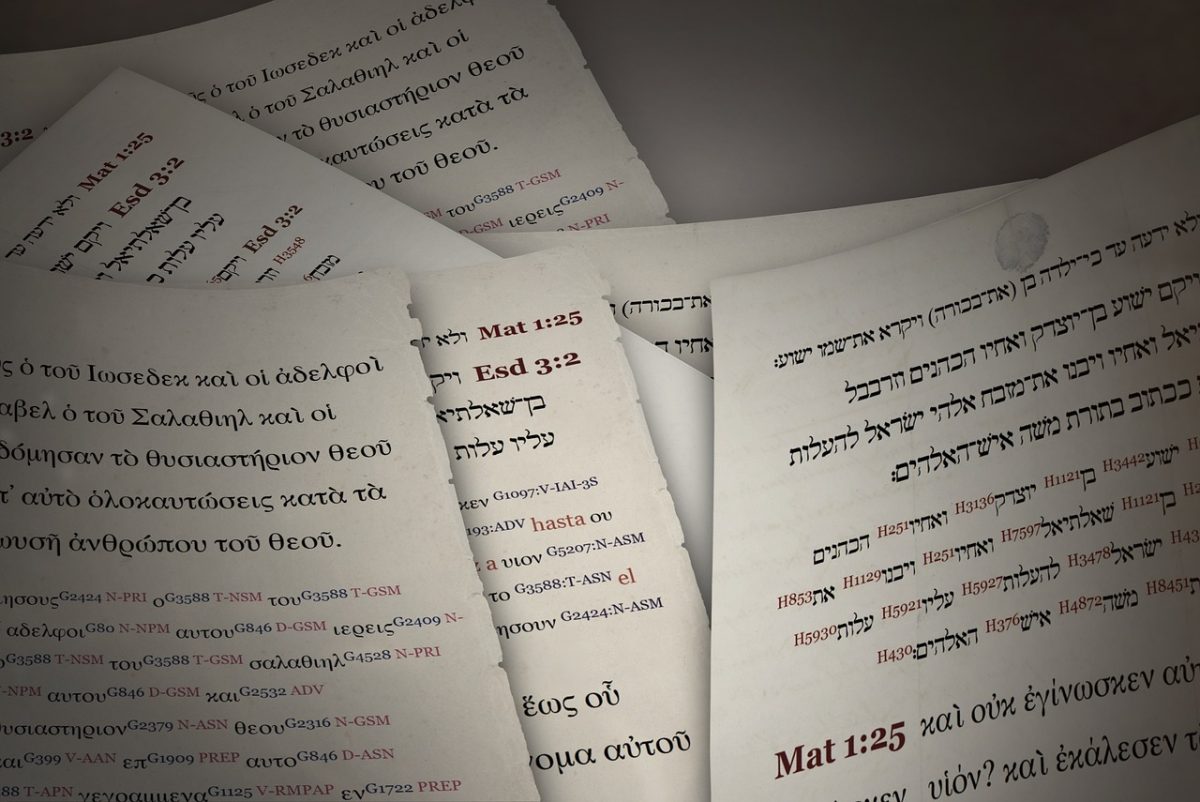 ὁ τοῦ Ιωσεδεκ καὶ οἱ ἀδελφ
ὁ τοῦ Σαλαθιηλ καὶ οἱ
τὸ θυσιαστήριον θεοῦ
καυτώσεις κατὰ τὰ
τοῦ θεοῦ.
GSM τουG3588 T-GSM
D-GSM ιερειςG2409 N-
N-PRI
3:2
Mat 1:25 ולא ידעה עד
Esd 3:2 ויקם ישו
בן־שאלתיאל ו
עליו עלות כ
Esd 3:2 ויקם
H3548
מזבח
את־בכורה)
ואחיו
ς ὁ τοῦ Ιωσεδεκ καὶ οἱ ἀδελφοὶ
αβελ ὁ τοῦ Σαλαθιηλ καὶ οἱ
δόμησαν τὸ θυσιαστήριον θεοῦ
τ’ αὐτὸ ὁλοκαυτώσεις κατὰ τὰ
ωυσῆ ἀνθρώπου τοῦ θεοῦ.
ησουςG2424 N-PRI οG3588 T-NSM τουG3588 T-GSM
αδελφοιG80 N-NPM αυτουG846 D-GSM ιερειςG2409 N-
οG3588 T-NSM τουG3588 T-GSM σαλαθιηλG4528 N-PRI
-NPM αυτουG846 D-GSM καιG2532 ADV
υσιαστηριονG2379 N-ASN θεουG2316 N-GSM
αιG399 V-AAN επG1909 PREP αυτοG846 D-ASN
88 T-APN γεγραμμεναG1125 V-RMPAP ενG1722 PREP
Mat 1:25 ולא
Esd 3:2 ויק
בן־שאלתיא
עליו עלות
κεν G1097:V-IAI-3S
193:ADV hasta ου
z a υιον G5207:N-ASM
το G3588:T-ASN el
ησουν G2424:N-ASM
ἕως οὗ
νομα αὐτοῦ
ולא ידעה עד כי־ילדה בן (את־בכורה) ויקרא את־שמו ישוע:
ויקם ישוע בן־יוצדק ואחיו הכהנים וזרבבל
יאל ואחיו ויבנו את־מזבח אלהי ישראל להעלות
ככתוב בתורת משה איש־האלהים:
ישועH3442 בןH1121 יוצדקH3136 ואחיוH251 הכהנים
בןH1121 שאלתיאלH7597 ואחיוH251 ויבנוH1129 אתH853
ישראלH3478 להעלותH5927 עליוH5921 עלותH5930
H8451 משהH4872 אישH376 האלהים:H430
Mat 1:25 καὶ οὐκ ἐγίνωσκεν αὐτ
υἱόν? καὶ ἐκάλεσεν τ